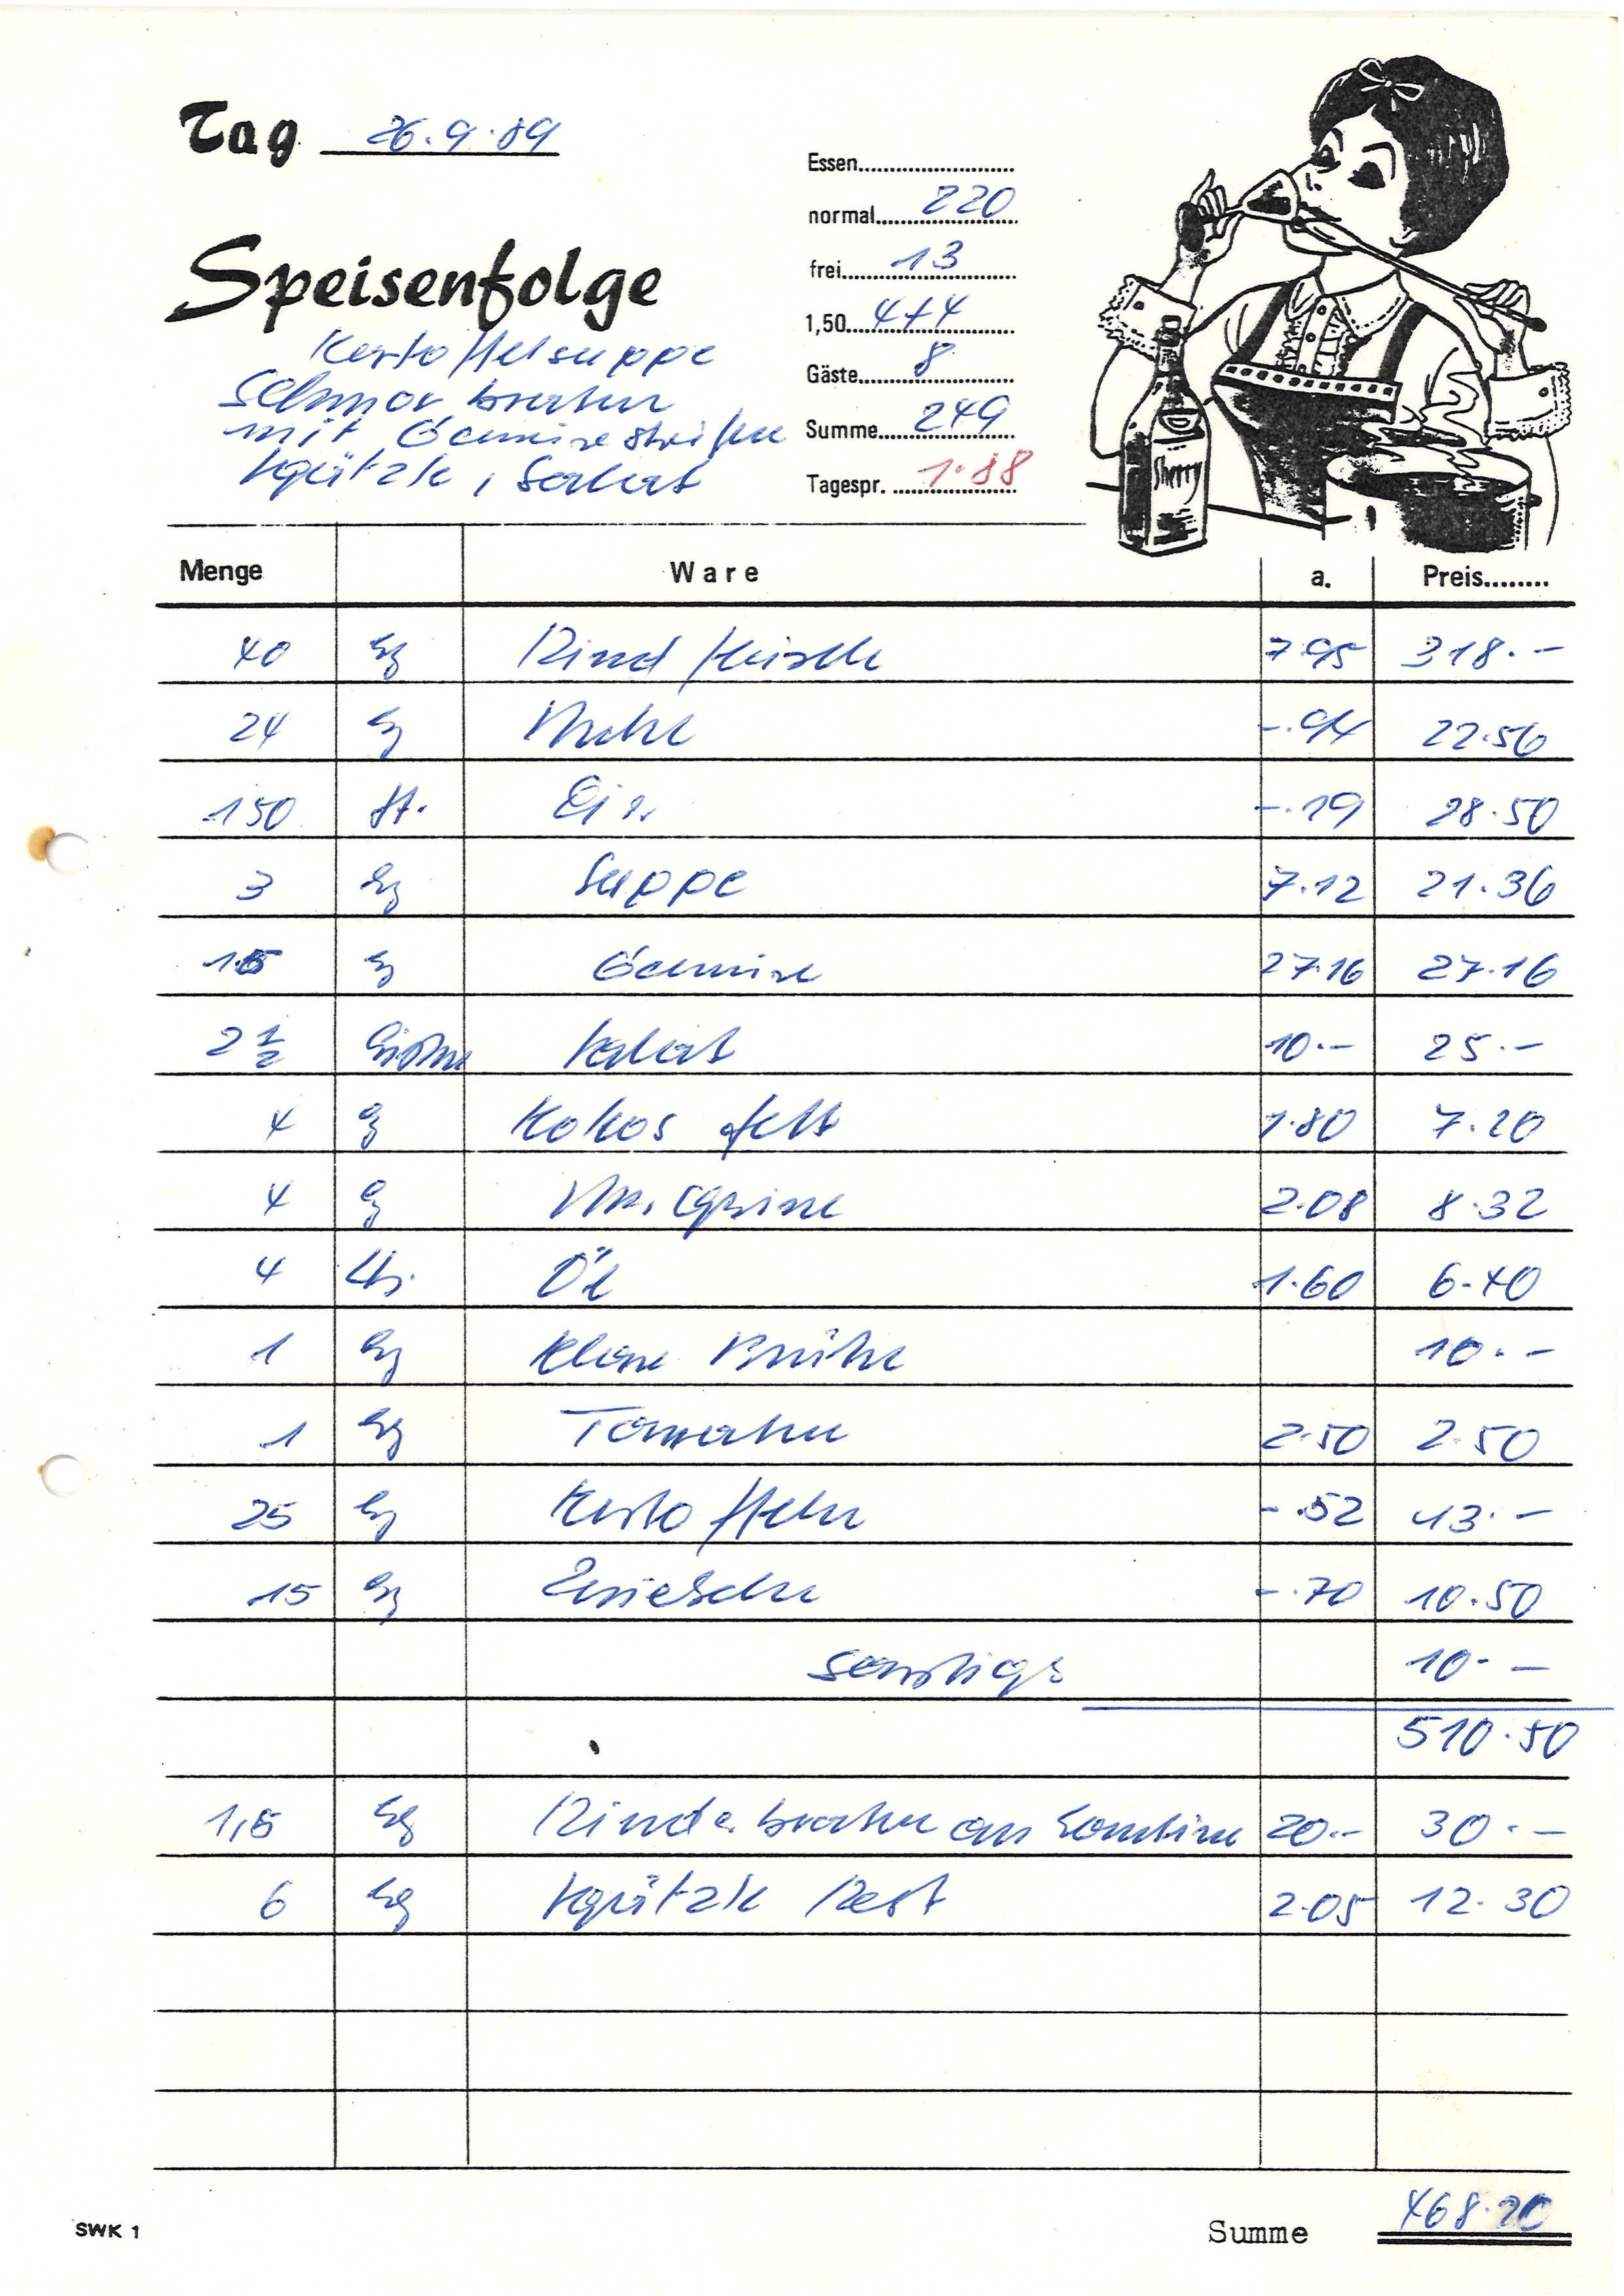 Tag 26.9.89
Essen
normal 220
frei 13
1,50 4+4
Gäste 8
Summe 249
Tagespr. 1.88
Speisenfolge
Kartoffelsuppe
Schmorbraten
mit Gemüsestreifen
Spätzle, Salat
Sherry
Menge Ware a. Preis
40 kg Rindfleisch 7.95 318.-
24 kg Mehl -.94 22.56
150 St. Eier -.19 28.50
3 kg Suppe 7.12 21.36
kg Gemüse 27.16 27.16
2 1/2 Salat 10.- 25.-
4 kg Kokosfett 1.80 7.20
4 kg Margarine 2.08 8.32
4 Ltr. Öl 1.60 6.40
1 kg Klare Brühe 10.-
1 kg Tomaten 2.50 2.50
25 kg Kartoffeln -.52 13.-
15 kg Zwiebeln -.70 10.50
sonstige 10.-
510.50
1,5 kg Rinderbraten an Kantine 20.- 30.-
6 kg Spätzle Rest 2.05 12.30
SWK 1
Summe 468.20